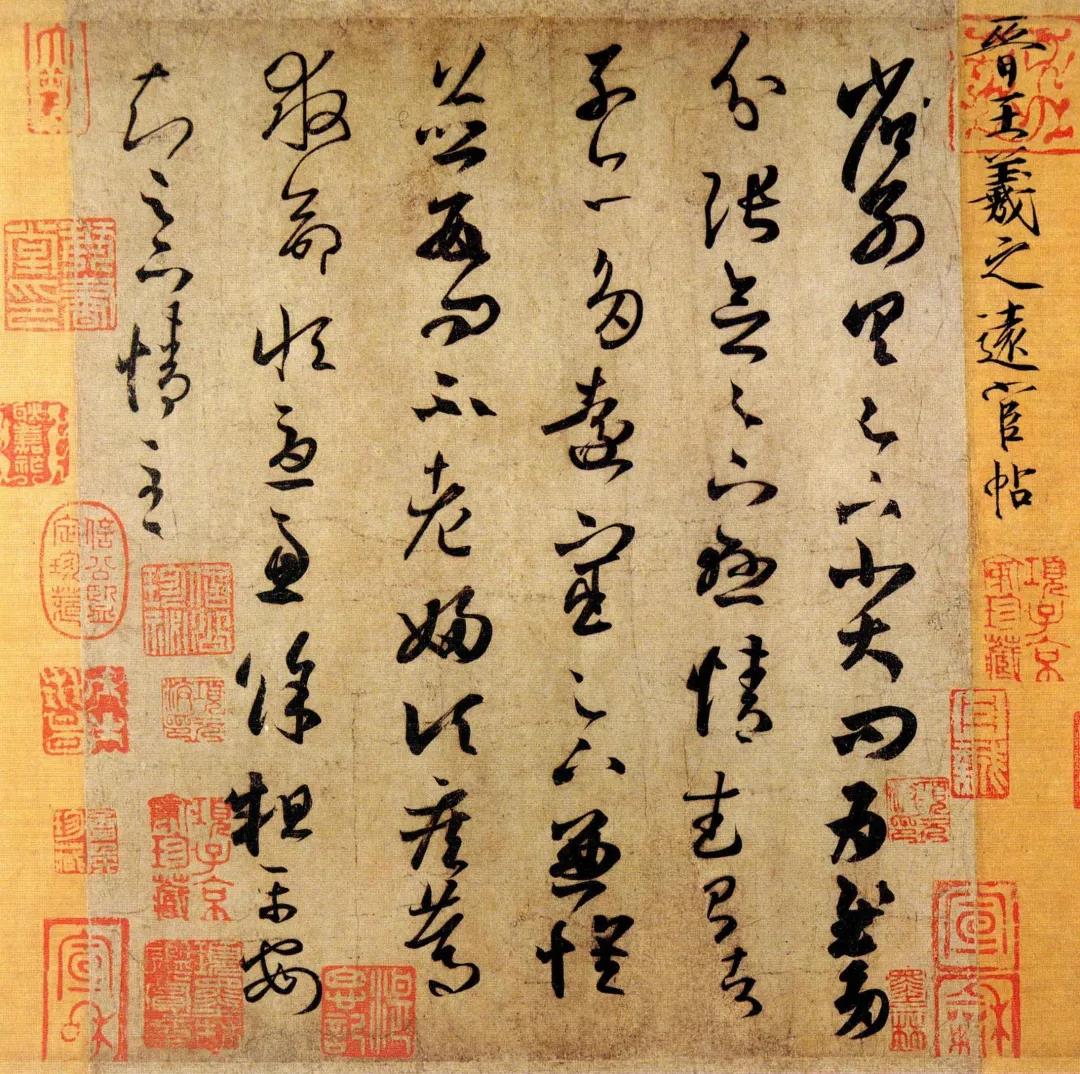 晉王羲之遠宦帖
省別具足下小大問為慰多
分張念足下懸情武昌諸
子亦多遠宦足下兼懷
並數問不老婦頃疾篤
救命恒憂慮餘粗平安
知足下情至
項子京家珍藏
墨林
項子京家珍藏
大觀
琴書堂印
宣和